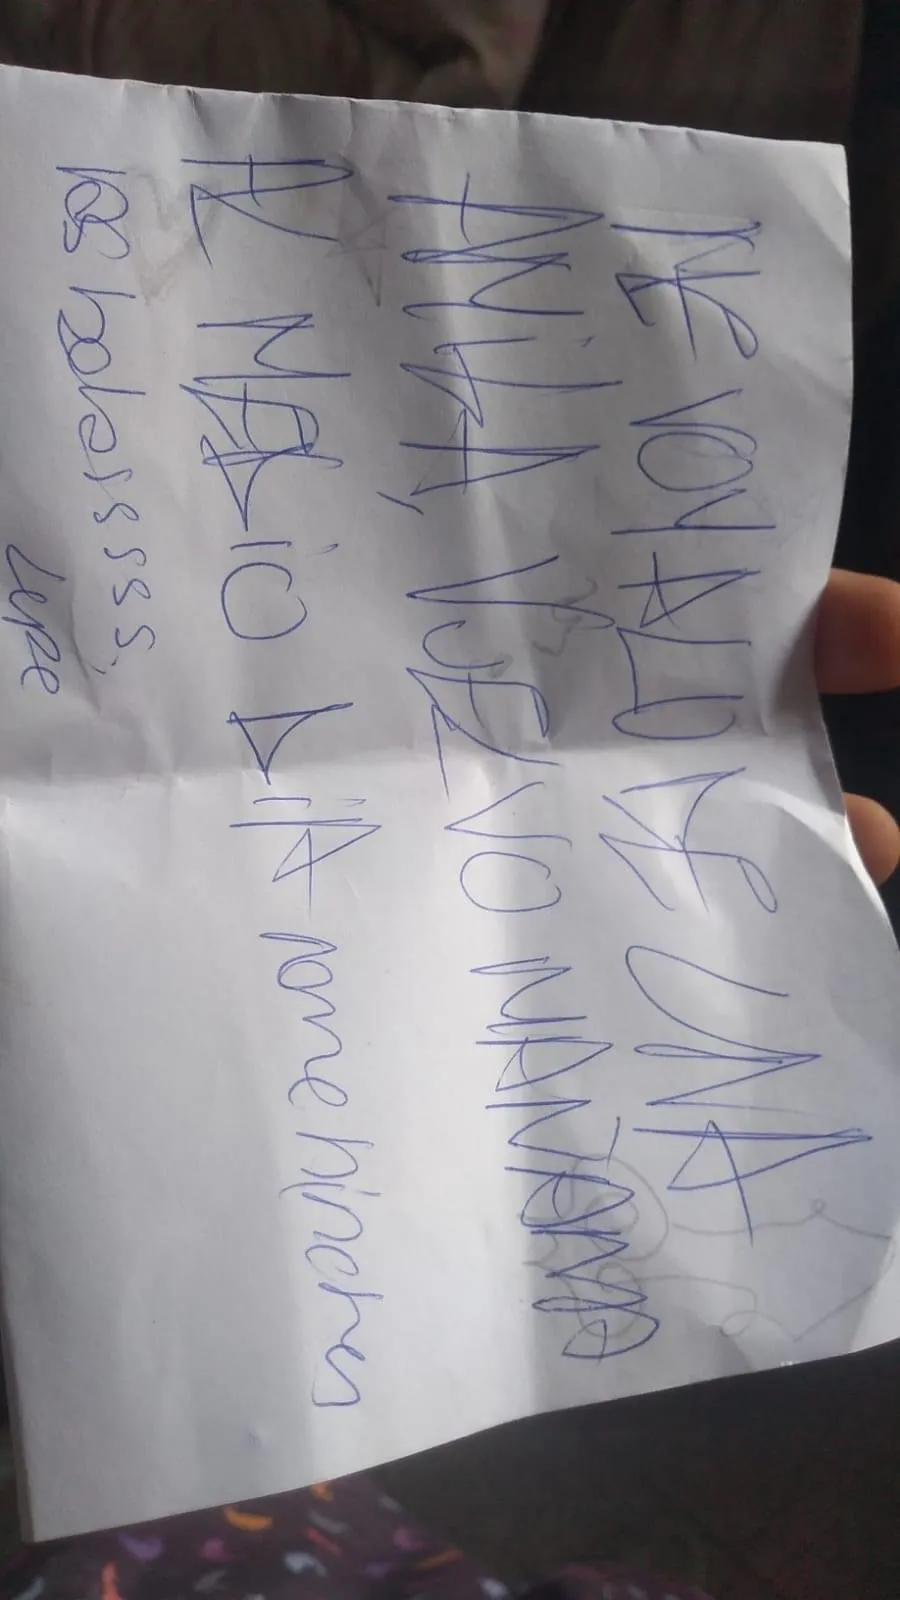 ME VOY A LO DE UNA
AMIGA, VUELVO MAÑANA
A MEDIO DIA no me hinchen
las bolasssss.
Lupe